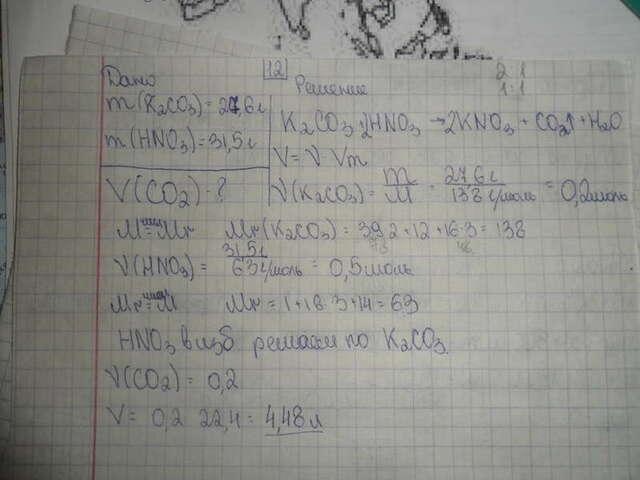 12
Дано
Решение
2 1
1:1
m(K2CO3)=27,6г
m(HNO3)=31,5г
V(CO2)-?
K2CO3+2HNO3→2KNO3+CO2↑+H2O
V=ν Vm
ν(K2CO3)= m/M = 27,6г/138 г/моль = 0,2моль
M=Mr Mr(K2CO3)=39 2+12+16·3=138
78 48
ν(HNO3)= 31,5г/63г/моль = 0,5моль
Mr=M Mr=1+16·3+14=63
HNO3 в изб. решаем по K2CO3.
ν(CO2)=0,2
V= 0,2 22,4= 4,48л